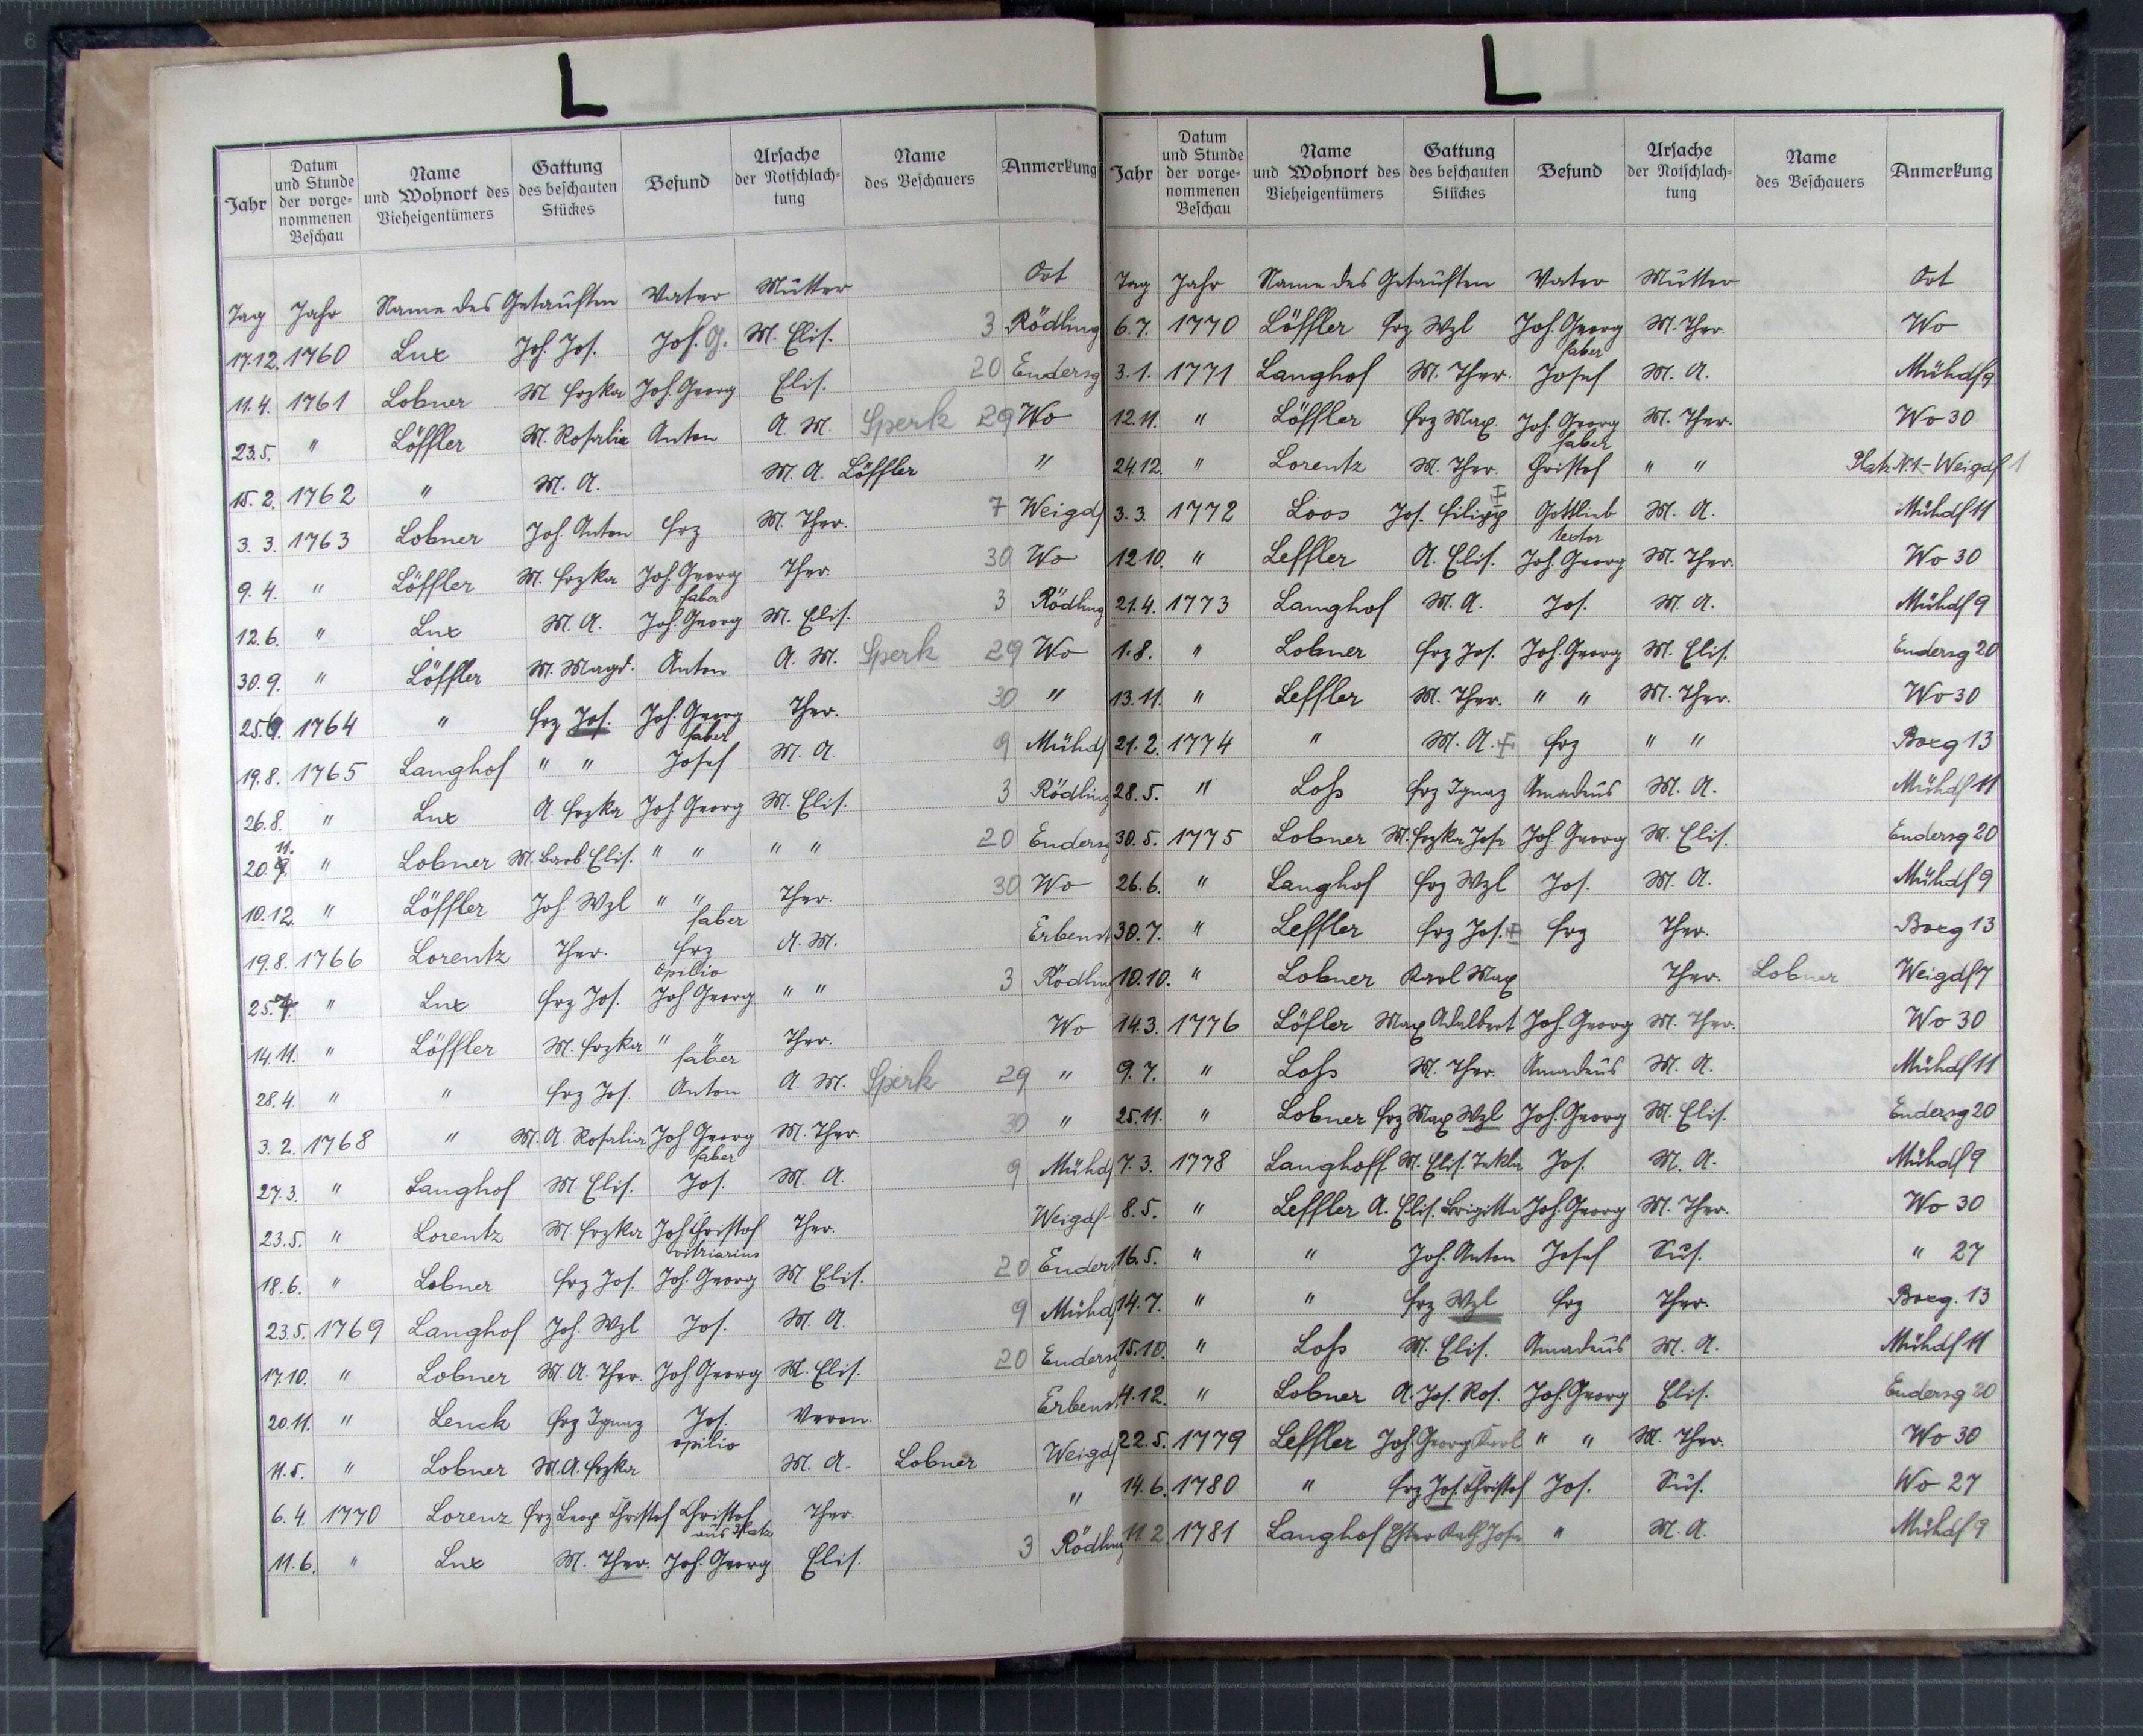 L
Jahr | Datum und Stunde der vorge-nommenen Beschau | Name und Wohnort des Vieheigentümers | Gattung des beschauten Stückes | Befund | Ursache der Notschlach-tung | Name des Beschauers | Anmerkung
Tag Jahr Name des Getauften Vater Mutter Ort
17.12. 1760 Lux Joh. Jos. Joh. G. M. Elis. 3 Rödling
11.4. 1761 Lobner M Frzka Joh Georg Elis. 20 Endersg
23.5. " Löffler M. Rosalia Anton A. M. Sperk 29 Wo
15.2. 1762 " M. A. M. A. Löffler "
3.3. 1763 Lobner Joh. Anton Frz M. Ther. 7 Weigdf
9.4. " Löffler M. Frzka Joh. Georg Ther. 30 Wo
faber
12.6. " Lux M. A. Joh. Georg M. Elis. 3 Rödling
30.9. " Löffler M. Magd. Anton A. M. Sperk 29 Wo
25.9. 1764 " Frz Jos. Joh. Georg Ther. 30 "
faber
19.8. 1765 Langhof " " Josef M. A. 9 Mühdf
26.8. " Lux A. Frzka Joh. Georg M. Elis. 3 Rödling
11.
20.9. " Lobner M. Barb. Elis. " " " " 20 Endersg
10.12. " Löffler Joh. Wzl " " Ther. 30 Wo
faber
19.8. 1766 Lorentz Ther. Frz A. M. Erbenst
opilio
25.4. " Lux Frz Jos. Joh Georg " " 3 Rödling
14.11. " Löffler M. Frzka " " Ther. Wo
faber
28.4. " " Frz Jos. Anton A. M. Sperk 29 "
3.2. 1768 " M. A. Rosalia Joh Georg M. Ther. 30 "
faber
27.3. " Langhof M. Elis. Jos. M. A. 9 Mühdf
23.5. " Lorentz M. Frzka Joh Christof Ther. Weigdf
vitriarius
18.6. " Lobner Frz Jos. Joh. Georg M. Elis. 20 Enders
23.5. 1769 Langhof Joh. Wzl Jos. M. A. 9 Mühdf
17.10. " Lobner M. A. Ther. Joh. Georg M. Elis. 20 Endersg
20.11. " Lenck Frz Ignaz Jos. Veron. Erbenst
opilio
11.5. " Lobner M. A. Frzka M. A. Lobner Weigdf
6.4. 1770 Lorenz Frz Leop Christof Christof Ther. "
aus Platz
11.6. " Lux M. Ther. Joh. Georg Elis. 3 Rödling
L
Jahr | Datum und Stunde der vorge-nommenen Beschau | Name und Wohnort des Vieheigentümers | Gattung des beschauten Stückes | Befund | Ursache der Notschlach-tung | Name des Beschauers | Anmerkung
Tag Jahr Name des Getauften Vater Mutter Ort
6.7. 1770 Löffler Frz Wzl Joh. Georg M. Ther. Wo
faber
3.1. 1771 Langhof M. Ther. Josef M. A. Mühdf 9
12.11. " Löffler Frz Max. Joh. Georg M. Ther. Wo 30
faber
24.12. " Lorentz M. Ther. Christof " " Platz N.1- Weigdf 1
3.3. 1772 Loos Jos. Filipp Gottlieb M. A. Mühdf 11
textor
12.10. " Leffler A. Elis. Joh. Georg M. Ther. Wo 30
21.4. 1773 Langhof M. A. Jos. M. A. Mühdf 9
1.8. " Lobner Frz Jos. Joh. Georg M. Elis. Endersg 20
13.11. " Leffler M. Ther. " " M. Ther. Wo 30
21.2. 1774 " M. A. ‡ Frz " " Boeg 13
28.5. " Loss Frz Ignaz Amadeus M. A. Mühdf 11
30.5. 1775 Lobner M. Frzka Josa Joh. Georg M. Elis. Endersg 20
26.6. " Langhof Frz Wzl Jos. M. A. Mühdf 9
30.7. " Leffler Frz Jos. ‡ Frz Ther. Boeg 13
10.10. " Lobner Karl Max Ther. Lobner Weigdf 7
14.3. 1776 Löfler Max Adalbert Joh. Georg M. Ther. Wo 30
9.7. " Loss M. Ther. Amadeus M. A. Mühdf 11
25.11. " Lobner Frz Max Wzl Joh. Georg M. Elis. Endersg 20
7.3. 1778 Langhoff M. Elis. Tekla Jos. M. A. Mühdf 9
8.5. " Leffler A. Elis. Brigitta Joh. Georg M. Ther. Wo 30
16.5. " " Joh. Anton Josef Sus. " 27
14.7. " " Frz Wzl Frz Ther. Boeg. 13
15.10. " Loss M. Elis. Amadeus M. A. Mühdf 11
4.12. " Lobner A. Jos. Ros. Joh. Georg Elis. Endersg 20
22.5. 1779 Leffler Joh. Georg Karl " " M. Ther. Wo 30
14.6. 1780 " Frz Jos. Christof Jos. Sus. Wo 27
11.2. 1781 Langhof Ester Kath. Josa " M. A. Mühdf 9